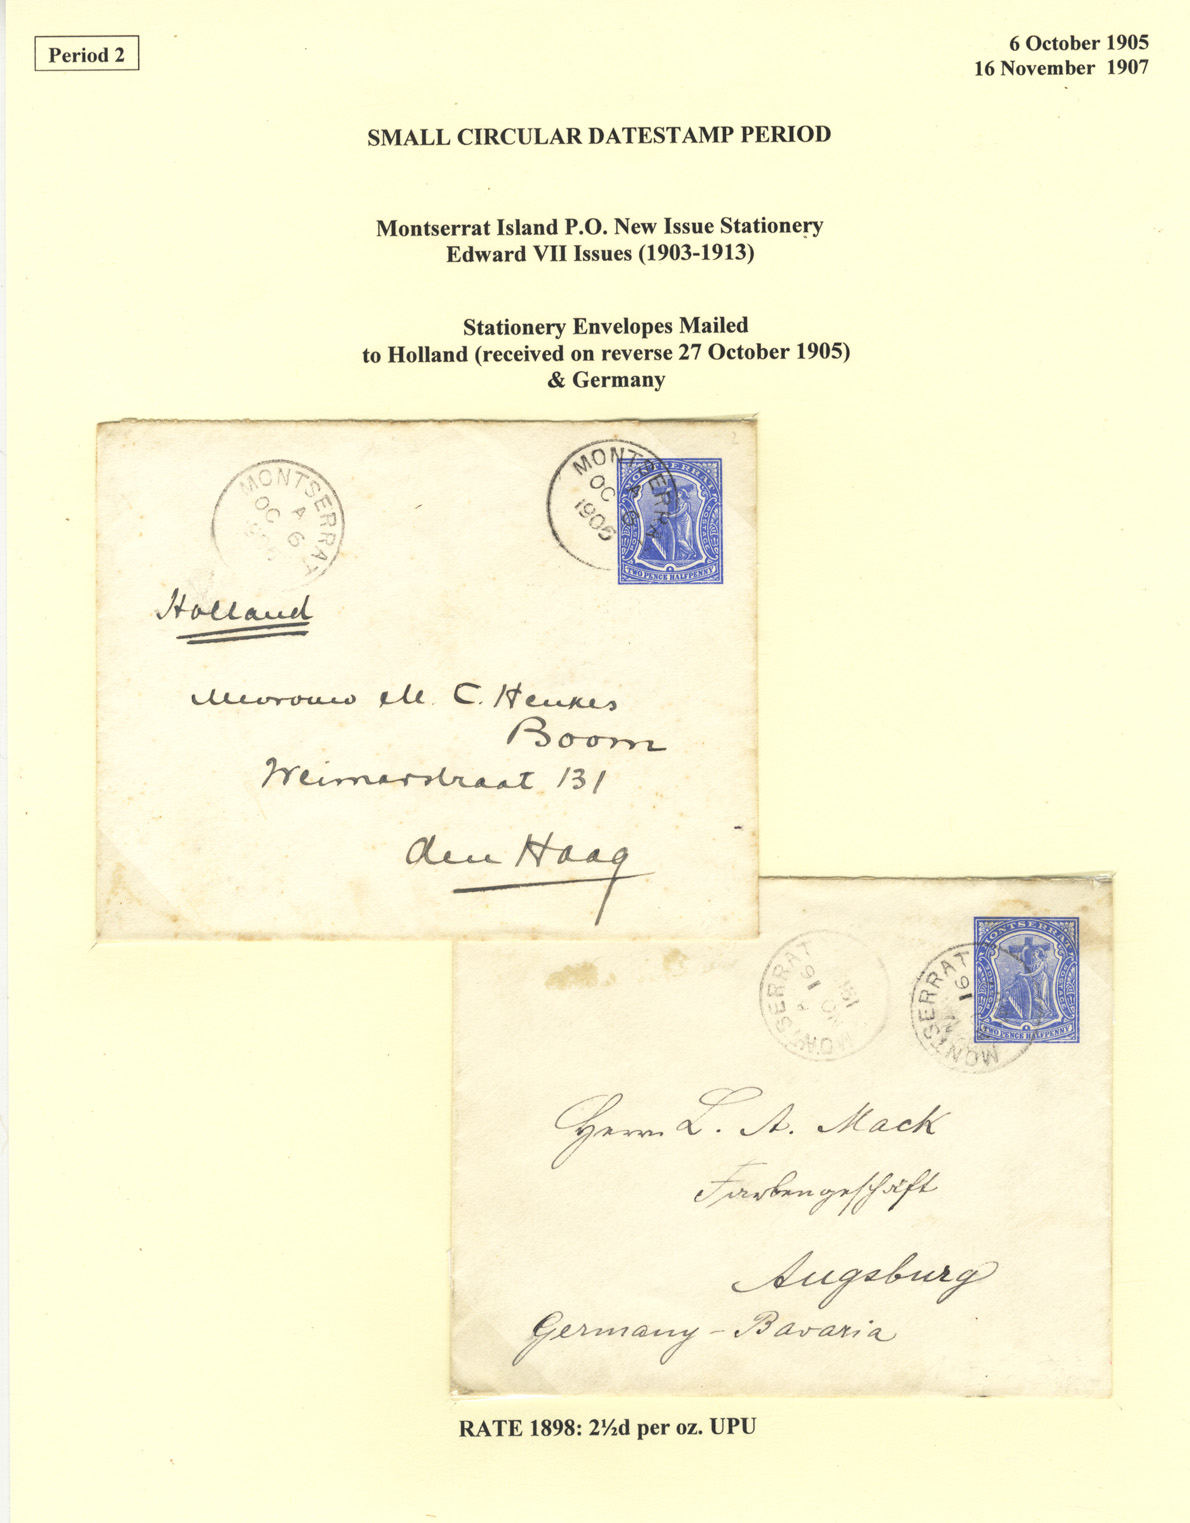 Period 2
6 October 1905
16 November 1907
SMALL CIRCULAR DATESTAMP PERIOD
Montserrat Island P.O. New Issue Stationery
Edward VII Issues (1903-1913)
Stationery Envelopes Mailed
to Holland (received on reverse 27 October 1905)
& Germany
MONTSERRAT
A
OC 6
MONTSERRA
A
OC 6
1905
MONTSERRAT
POSTAGE
TWO PENCE HALFPENNY
Holland
Mevrouw M. C. Henkes
Boom
Weimarstraat 131
den Haag
MONTSERRAT
16
MONTSERRAT
16
MONTSERRAT
POSTAGE
TWO PENCE HALFPENNY
Herrn L. A. Mack
Farbengeschäft
Augsburg
Germany - Bavaria
RATE 1898: 2½d per oz. UPU